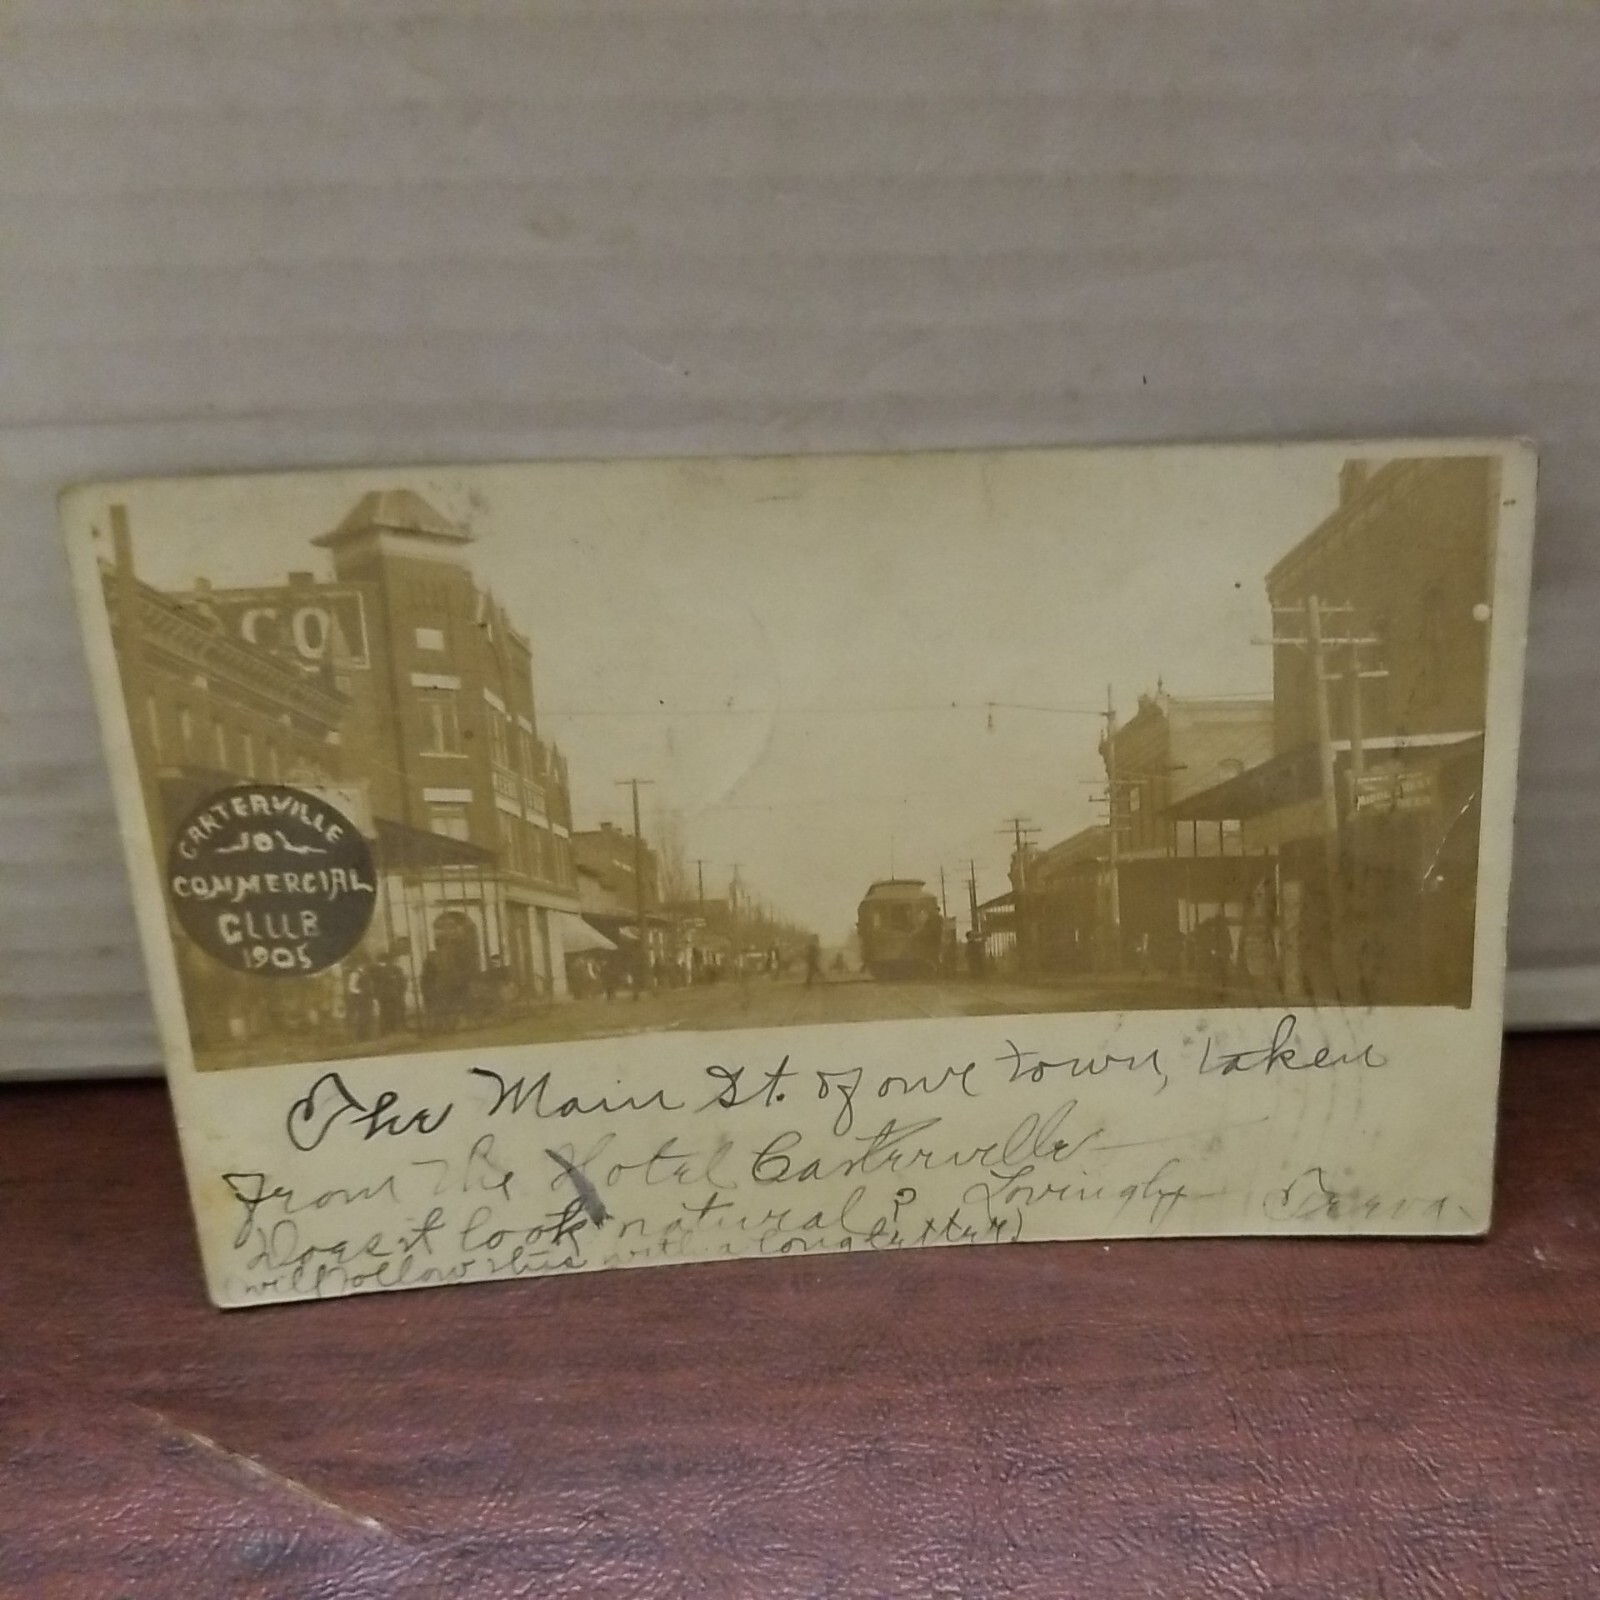 CO
CARTERVILLE
COMMERCIAL
CLUB
1905
The Main St. of our town, taken
From The Hotel Carterville
Does it look natural? Lovingly
(will follow this with a long letter)